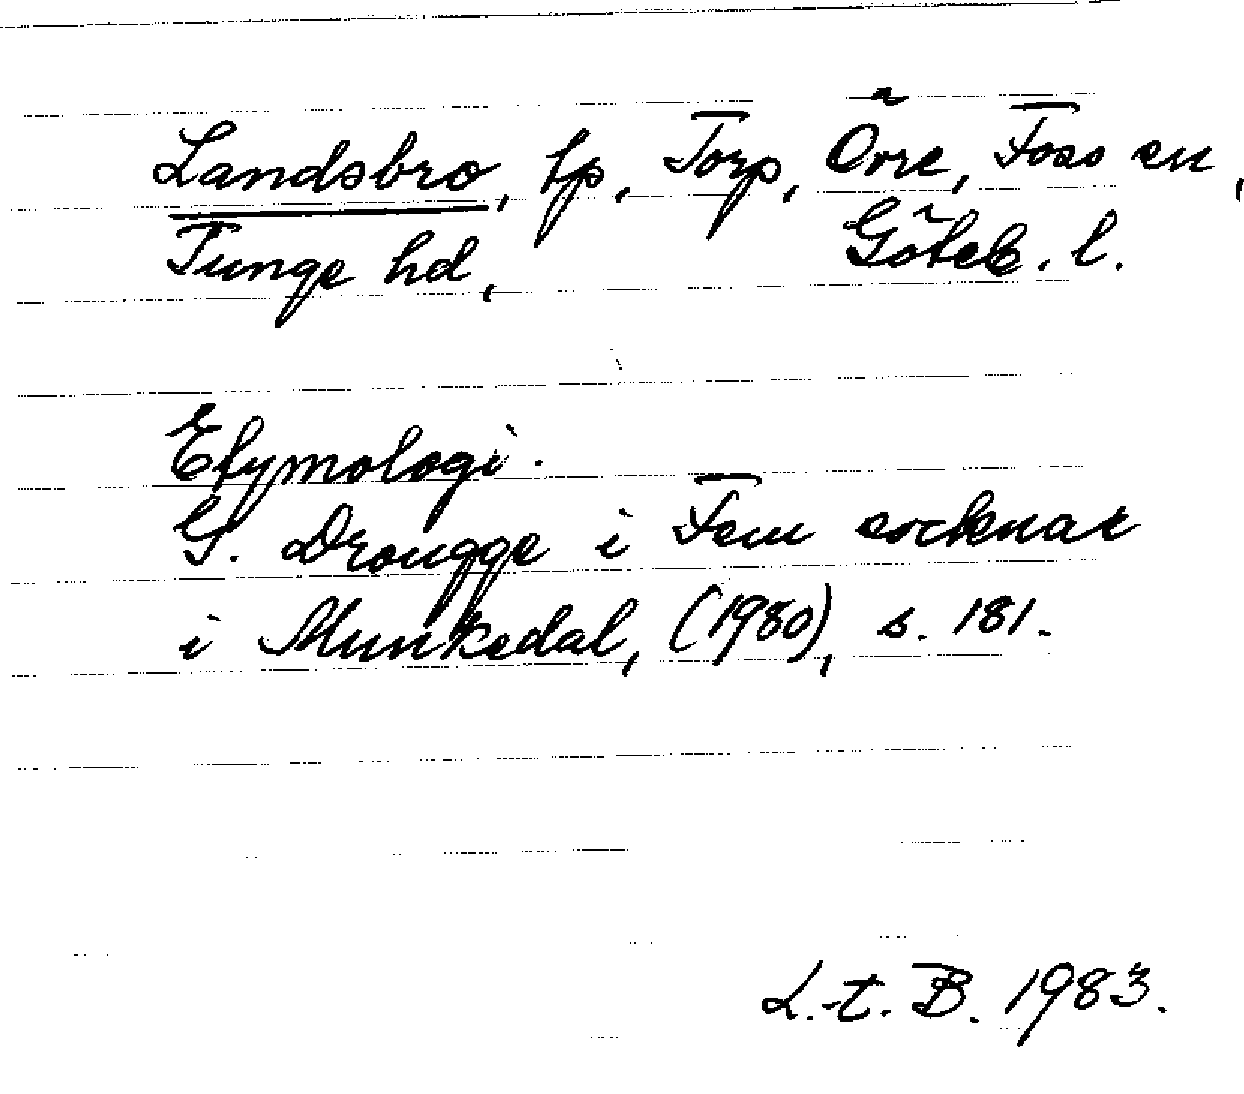 Landsbro, tp, Torp, Övre, Foss sn,
Tunge hd, Göteb. l.
Etymologi.
G. Drougge i Fem socknar
i Munkedal, (1980), s. 181.
L.t.B. 1983.